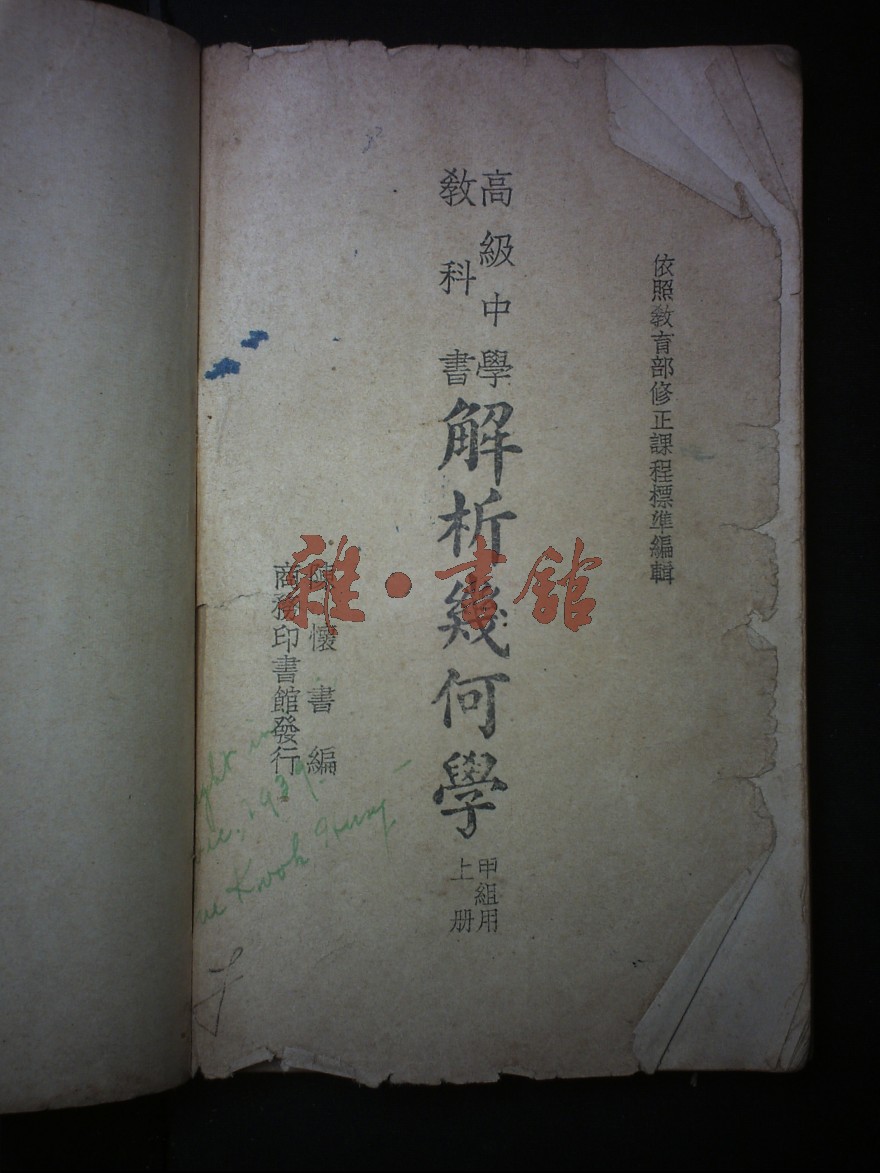 依照敎育部修正課程標準編輯
高級中學
敎科書
解析幾何學
甲組用
上册
陳懷書編
商務印書館發行
雜·書館
1939
Kwok